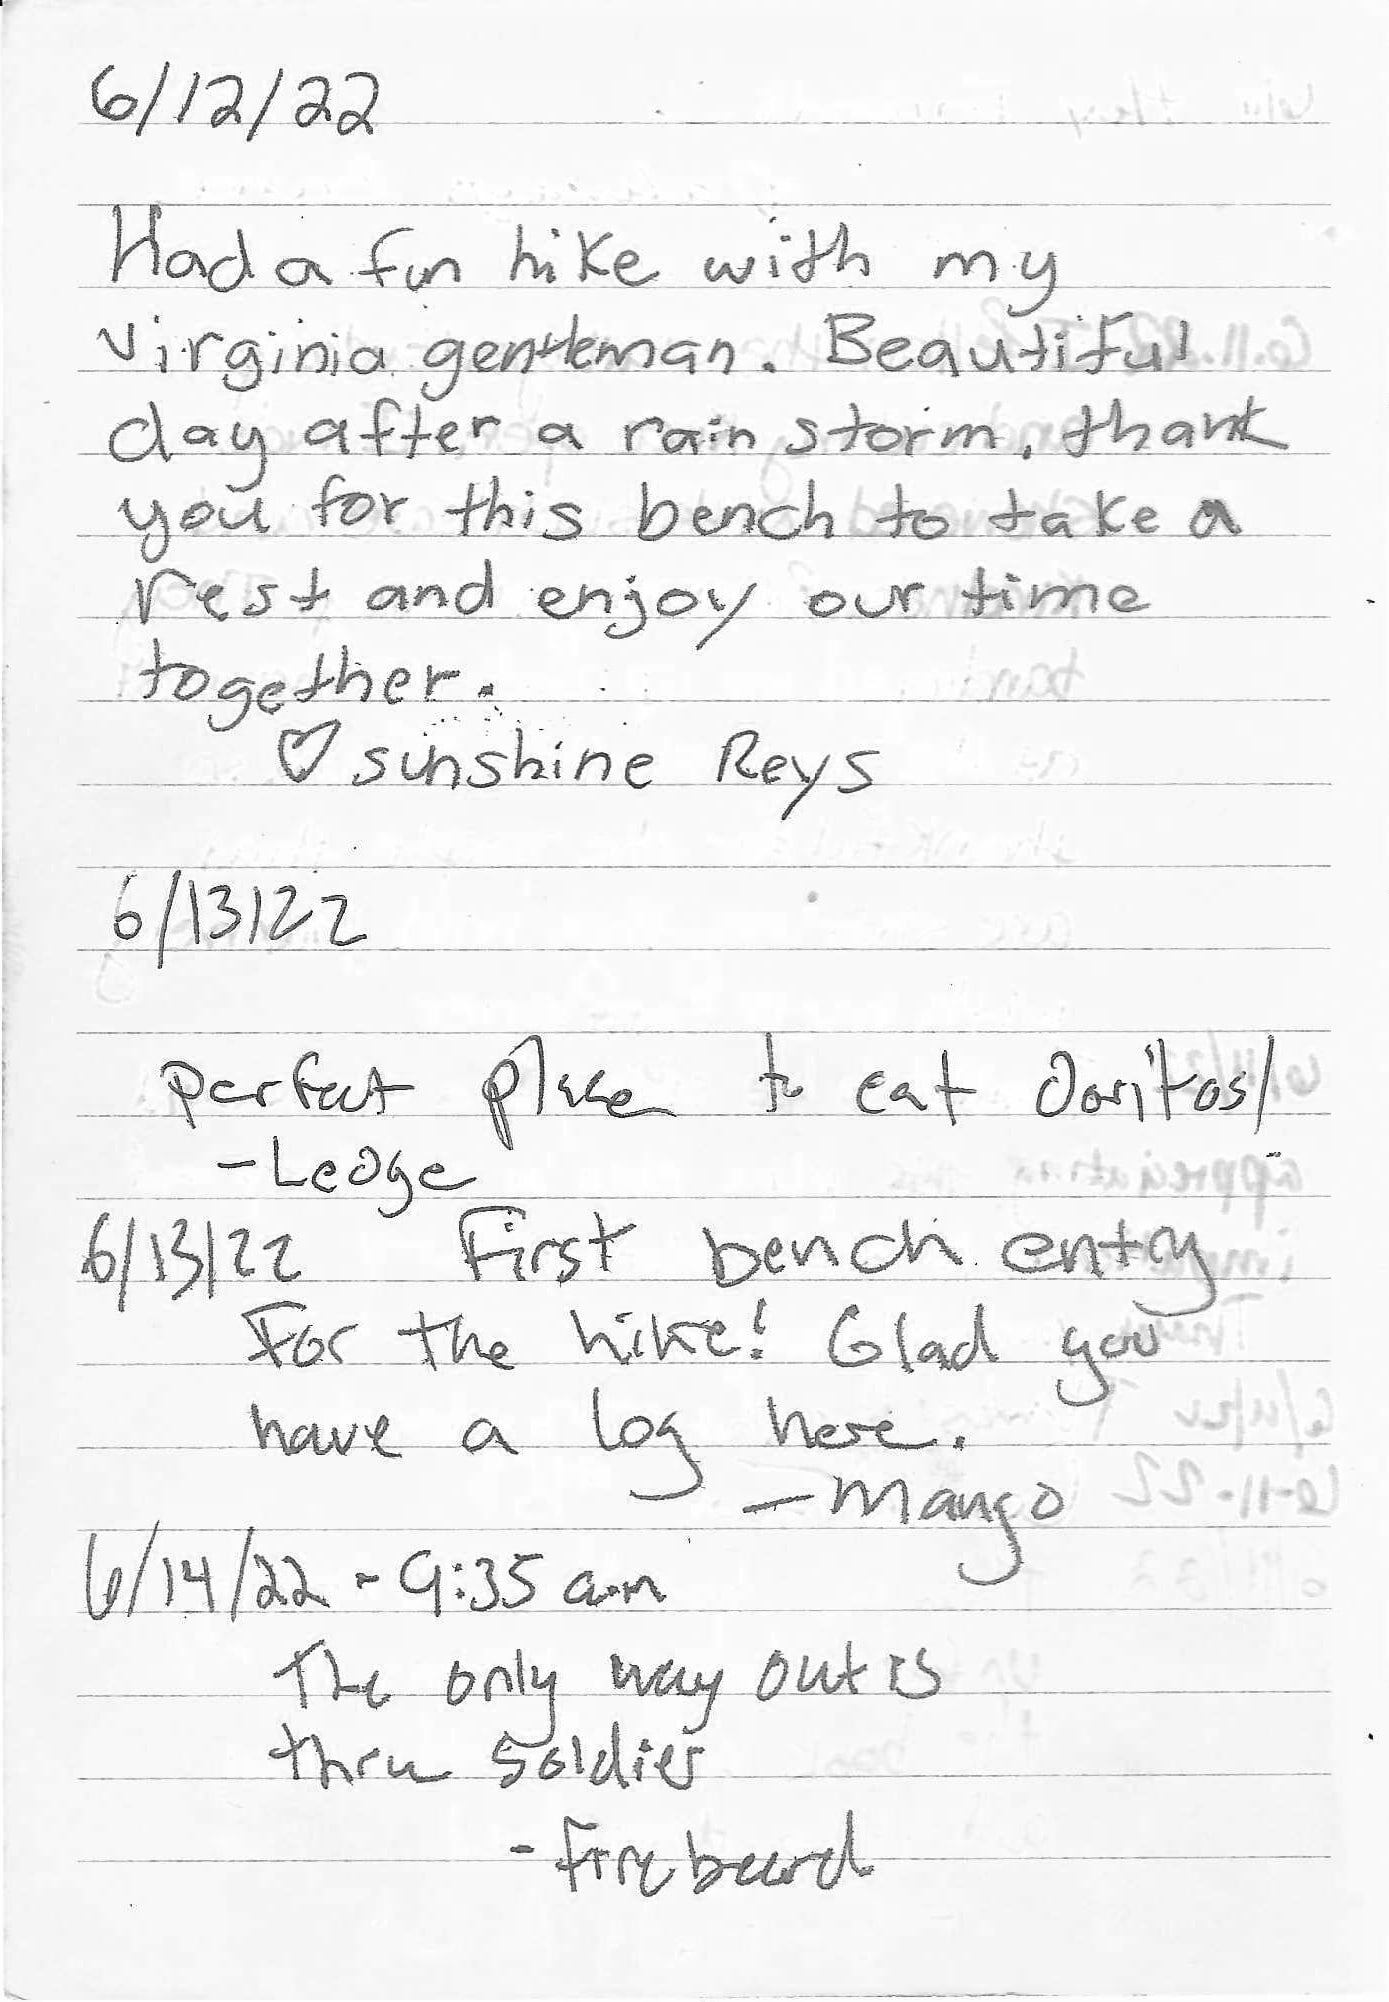 6/12/22
Had a fun hike with my
Virginia gentleman. Beautiful
day after a rain storm. thank
you for this bench to take a
rest and enjoy our time
together.
♡ sunshine Reys
6/13/22
Perfect place to eat Doritos!
- Ledge
6/13/22 First bench entry
For the hike! Glad you
have a log here.
- Mango
6/14/22 - 9:35 a.m
The only way out is
thru soldier
- Firebeard